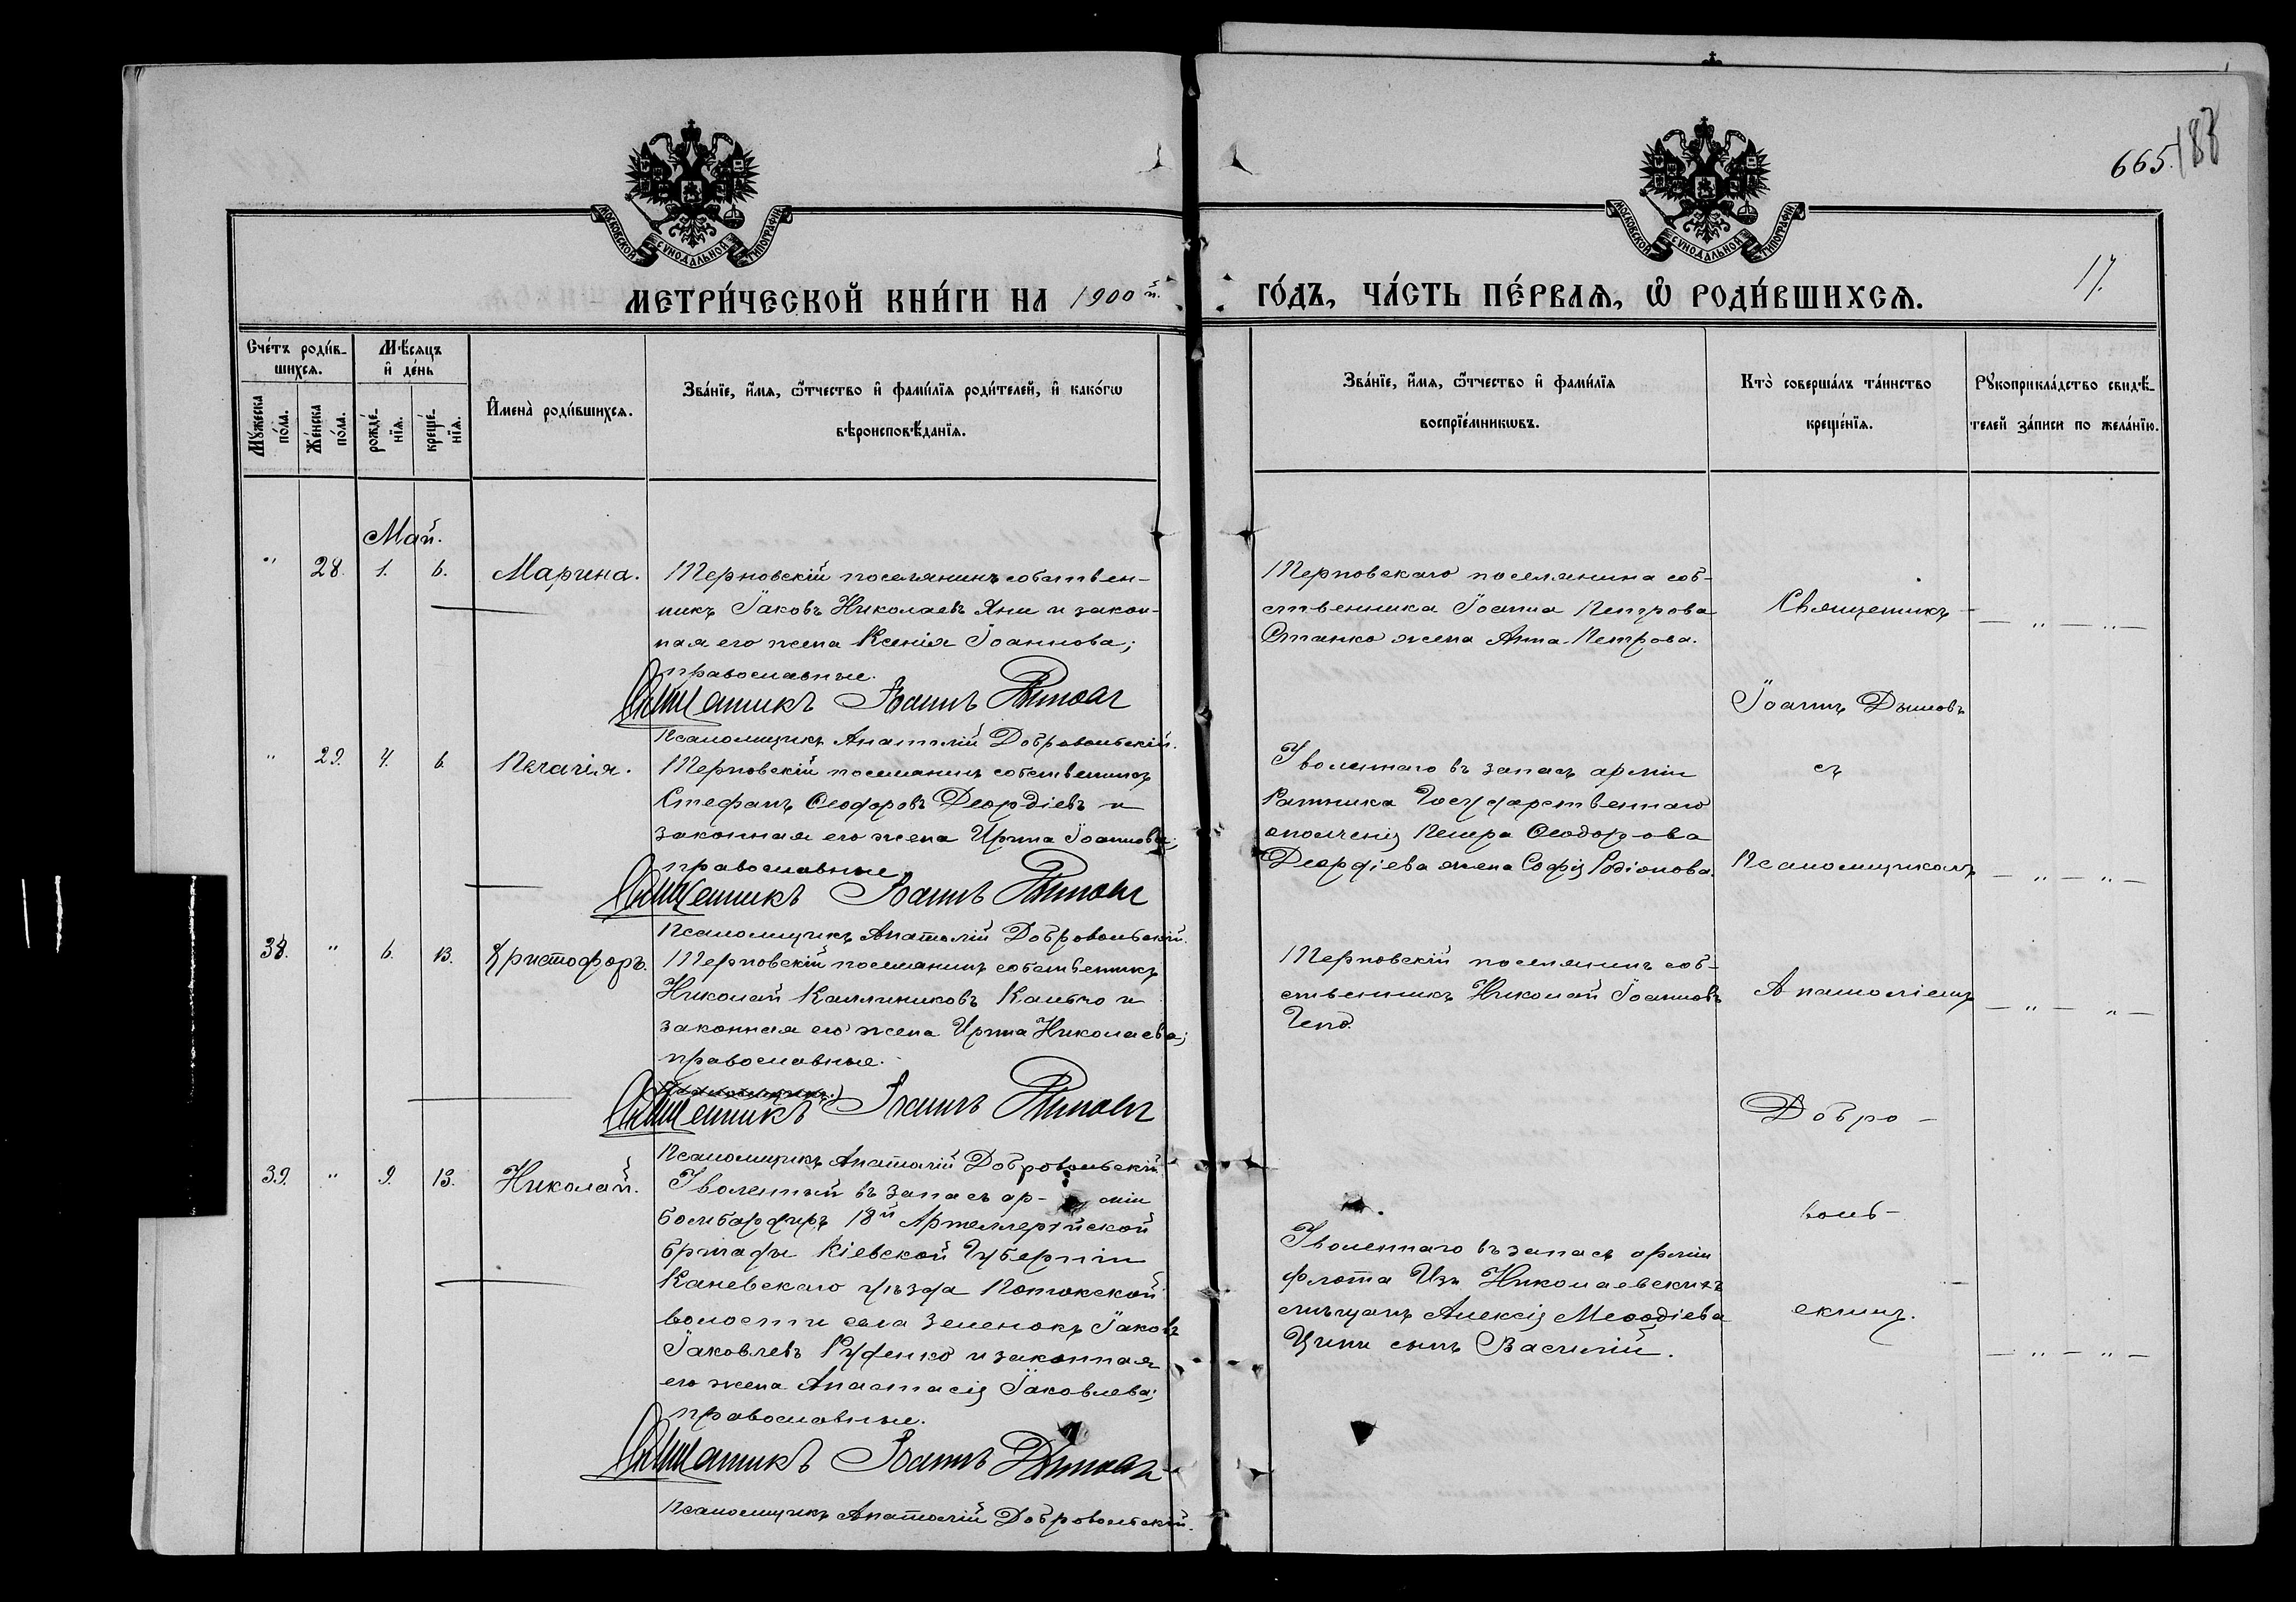 665.
188
МОСКОВСКОЙ СѴНОДАЛЬНОЙ ТИПОГРАФІИ
МОСКОВСКОЙ СѴНОДАЛЬНОЙ ТИПОГРАФІИ
17.
МЕТРИ́ЧЕСКОЙ КНИ́ГИ НА 1900й.
ГО́ДЪ, ЧА́СТЬ ПЕ́РВАѦ, Ѡ҆ РОДИ́ВШИХСѦ.
Сче́тъ роди́в-
шихсѧ.
Мѣ́сяцъ
и҆ де́нь
Мꙋ́жеска
по́ла.
Же́нска
по́ла.
рожде́-
нїѧ.
креще́-
нїѧ.
И҆мена̀ роди́вшихсѧ.
Зва́нїе, и҆́мѧ, ѻ҆́тчество и҆ фами́лїѧ роди́телей, и҆ како́гѡ
вѣроисповѣ́данїѧ.
Зва́нїе, и҆́мѧ, ѻ҆́тчество и҆ фами́лїѧ
воспрїе́мникѡвъ.
Кто̀ соверша́лъ та́инство
креще́нїѧ.
Рꙋкоприкла́дство свидѣ́-
телей за́писи по жела́нїю.
Май.
" 28. 1. 6. Марина.
Терновскій поселянинъ собствен-
никъ Іаковъ Николаевъ Яни и закон-
ная его жена Ксенія Іоаннова;
православные.
Священникъ Іоаннъ Дымовъ
Псаломщикъ Анатолій Добровольскій.
Терновскаго поселянина соб-
ственника Іоанна Петрова
Станко жена Анна Петрова.
" 29. 4. 6. Пелагія.
Терновскій поселянинъ собственникъ
Стефанъ Ѳеодоровъ Деордіевъ и
законная его жена Ирина Іоаннова;
православные
Священникъ Іоаннъ Дымовъ
Псаломщикъ Анатолій Добровольскій.
Уволеннаго въ запасъ арміи
Ратника Государственнаго
ополченія Петра Ѳеодорова
Деордіева жена Софія Родіонова.
38. " 6. 13. Христофоръ.
Терновскій поселянинъ собственникъ
Николай Каллиниковъ Кальчо и
законная его жена Ирина Николаева;
православные.
Священникъ Іоаннъ Дымовъ
Псаломщикъ Анатолій Добровольскій
Терновскій поселянинъ соб-
ственникъ Николай Іоанновъ
39. " 9. 13. Николай.
Уволенный въ запасъ ар- міи
бомбардиръ 18й Артиллерійской
бригады Кіевской Губерніи
Каневскаго уѣзда Потокской
волости села Зеленокъ Іаковъ
Іаковлевъ Руденко и законная
его жена Анастасія Іаковлева;
православные.
Священникъ Іоаннъ Дымовъ
Псаломщикъ Анатолій Добровольскій.
Уволеннаго въ запасъ арміи
флота Изъ Николаевскихъ
мѣщанъ Алексія Меѳодіева
сынъ Василій.
Священникъ
Іоаннъ Дымовъ
съ
Псаломщикомъ
Анатоліемъ
Добро-
воль-
скимъ.
— " — " —
— " — " —
— " — " —
— " — " —